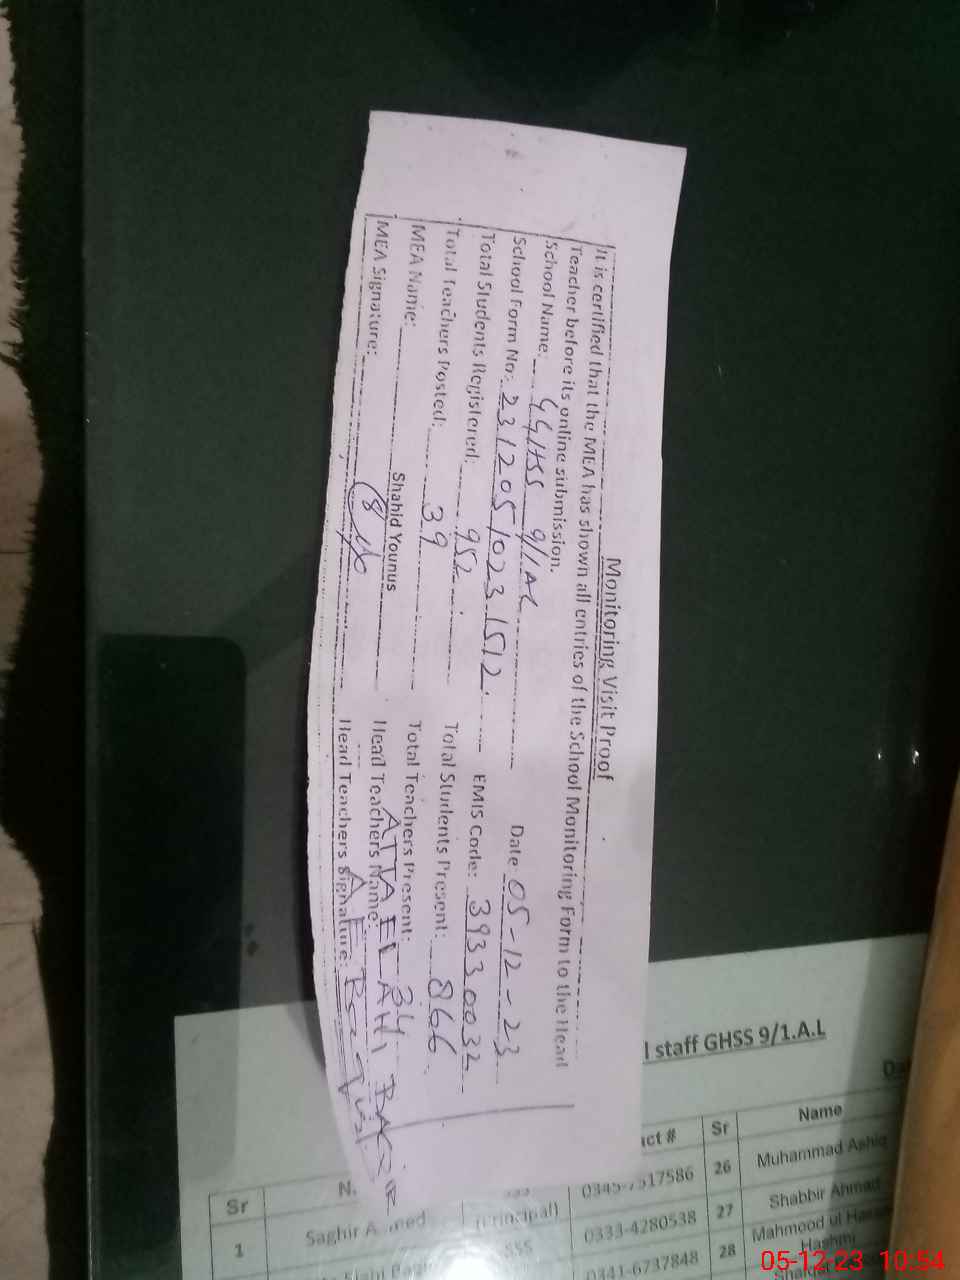 Monitoring Visit Proof
It is certified that the MEA has shown all entries of the School Monitoring Form to the Head
Teacher before its online submission.
School Name: GGHSS 9/1AL Date 05-12-23
School Form No: 23120510231512. EMIS Code: 39330032
Total Students Registered: 952 Total Students Present: 866
Total Teachers Posted: 39 Total Teachers Present: 34
MEA Name: Shahid Younus Head Teachers Name: ATTA ELAHI
MEA Signature: Head Teachers Signature:
l staff GHSS 9/1.A.L
Sr act # Sr Name
1 Saghir 26 Muhammad Ashiq
(Principal) 0333-4280538 27 Shabbir Ahmad
SSS 0341-6737848 28 Mahmood ul
Hashmi
05-12-23 10:54